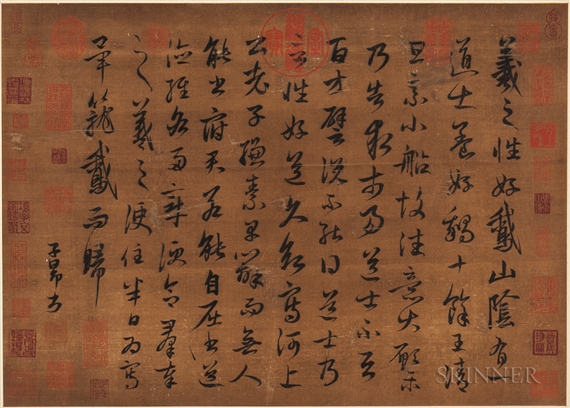 羲之性好鵞山陰有一
道士養好鵝十餘王清
旦乘小船故往意大願樂
乃告求市易道士不與
百方譬說不能得道士乃
言性好道久欲寫河上
公老子縑素早辦而無人
能書府君若能自屈書道
德經各兩章便合羣奉
之羲之便住半日為寫
畢籠鵞而歸
子昂書
SKINNER